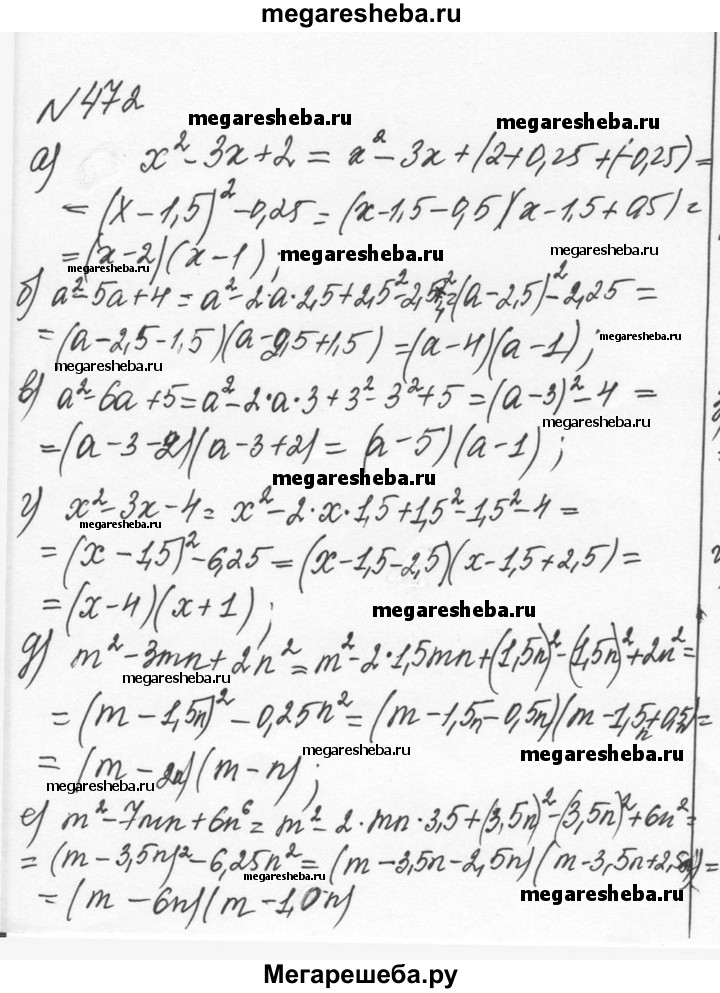 megaresheba.ru
N 472
megaresheba.ru megaresheba.ru
а) x² - 3x + 2 = x² - 3x + (2 + 0,25 + (-0,25)) =
= (x - 1,5)² - 0,25 = (x - 1,5 - 0,5)(x - 1,5 + 0,5) =
= (x - 2)(x - 1);
megaresheba.ru megaresheba.ru megaresheba.ru
б) a² - 5a + 4 = a² - 2·a·2,5 + 2,5² - 2,5² + 4 = (a - 2,5)² - 2,25 =
= (a - 2,5 - 1,5)(a - 2,5 + 1,5) = (a - 4)(a - 1);
megaresheba.ru megaresheba.ru
в) a² - 6a + 5 = a² - 2·a·3 + 3² - 3² + 5 = (a - 3)² - 4 =
megaresheba.ru
= (a - 3 - 2)(a - 3 + 2) = (a - 5)(a - 1);
megaresheba.ru
г) x² - 3x - 4 = x² - 2·x·1,5 + 1,5² - 1,5² - 4 =
megaresheba.ru
= (x - 1,5)² - 6,25 = (x - 1,5 - 2,5)(x - 1,5 + 2,5) =
= (x - 4)(x + 1);
megaresheba.ru
д) m² - 3mn + 2n² = m² - 2·1,5mn + (1,5n)² - (1,5n)² + 2n² =
megaresheba.ru
= (m - 1,5n)² - 0,25n² = (m - 1,5n - 0,5n)(m - 1,5n + 0,5n) =
megaresheba.ru megaresheba.ru
= (m - 2n)(m - n);
megaresheba.ru
е) m² - 7mn + 6n⁶ = m² - 2·mn·3,5 + (3,5n)² - (3,5n)² + 6n² =
= (m - 3,5n)² - 6,25n² = (m - 3,5n - 2,5n)(m - 3,5n + 2,5n) =
megaresheba.ru megaresheba.ru
= (m - 6n)(m - 1,0n)
Мегарешеба.ру